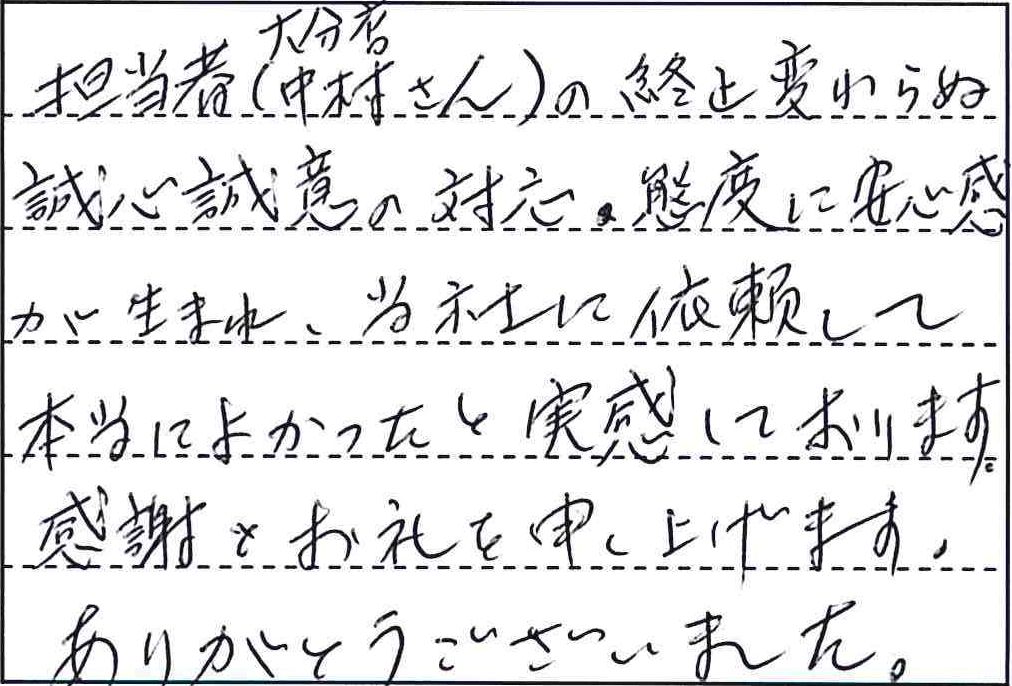 大分者
担当者(中村さん)の終止変わらぬ
誠心誠意の対応。態度に安心感
が生まれ、当社に依頼して
本当によかったと実感しております。
感謝とお礼を申し上げます。
ありがとうございました。